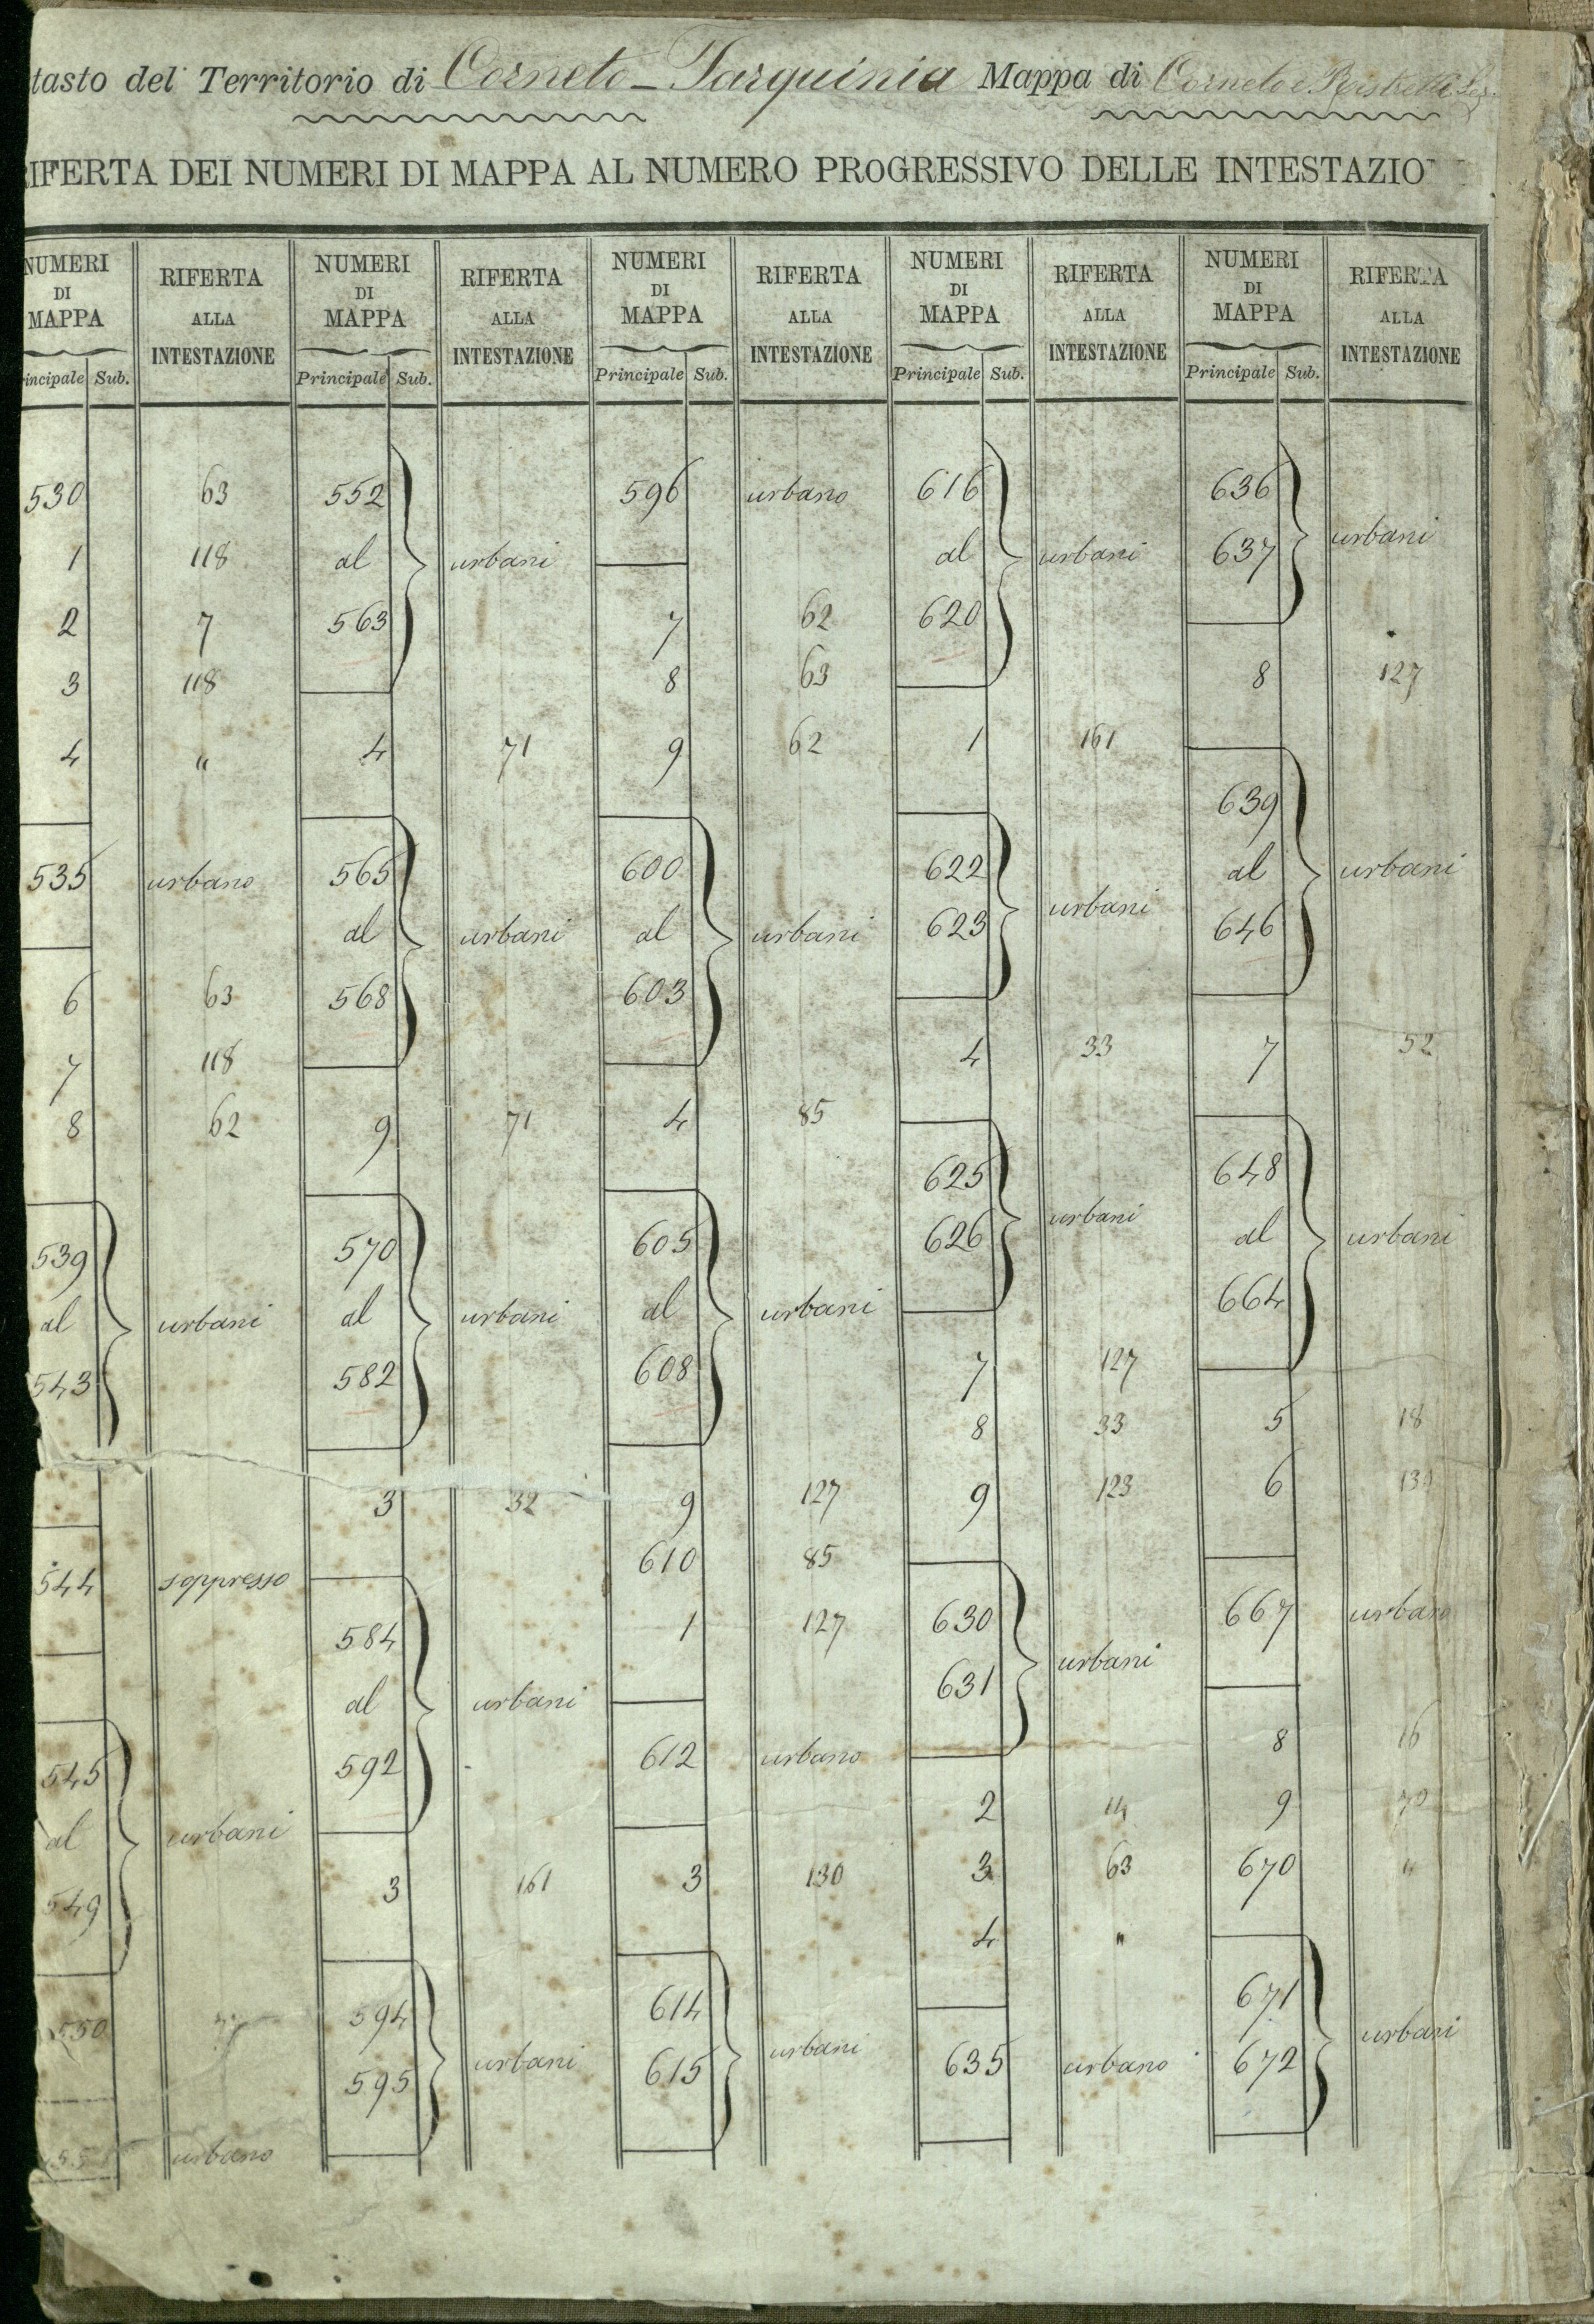 tasto del Territorio di Corneto-Tarquinia Mappa di Corneto e
RIFERTA DEI NUMERI DI MAPPA AL NUMERO PROGRESSIVO DELLE INTESTAZIO
NUMERI DI MAPPA
Principale Sub.
RIFERTA ALLA INTESTAZIONE
530 63
1 118
2 7
3 118
4 "
535 urbano
6 63
7 118
8 62
539
al urbani
543
544 soppresso
545
al urbani
549
550
551 urbano
NUMERI DI MAPPA
Principale Sub.
RIFERTA ALLA INTESTAZIONE
552
al urbani
563
4 71
565
al urbani
568
9 71
570
al urbani
582
3 32
584
al urbani
592
3 161
594
urbani
595
NUMERI DI MAPPA
Principale Sub.
RIFERTA ALLA INTESTAZIONE
596 urbano
7 62
8 63
9 62
600
al urbani
603
4 85
605
al urbani
608
9 127
610 85
1 127
612 urbano
3 130
614
urbani
615
NUMERI DI MAPPA
Principale Sub.
RIFERTA ALLA INTESTAZIONE
616
al urbani
620
1 161
622
urbani
623
4 33
625
urbani
626
7 127
8 33
9 123
630
urbani
631
2 14
3 63
4 "
635 urbano
NUMERI DI MAPPA
Principale Sub.
RIFERTA ALLA INTESTAZIONE
636
urbani
637
8 127
639
al urbani
646
7 52
648
al urbani
664
5 18
6
667 urbano
8 16
9 70
670 "
671
urbani
672